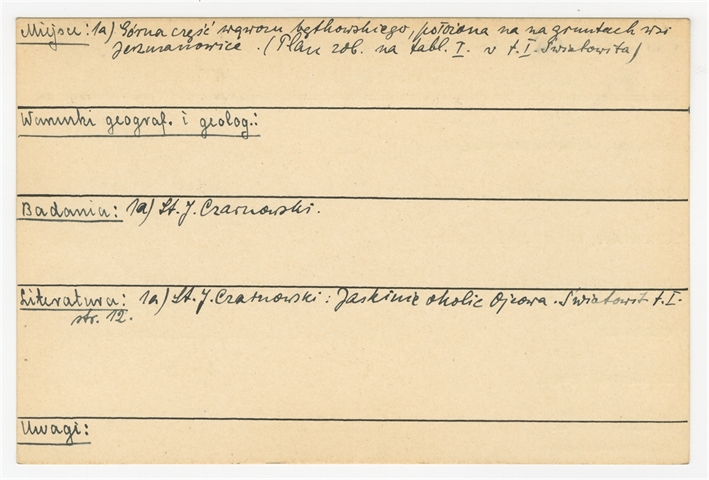 Miejsce: 1a) Górna część wąwozu będkowskiego, położona na na gruntach wsi
Jerzmanowice. (Plan zob. na tabl. I. w t. I. Światowita)
Warunki geograf. i geolog.:
Badania: 1a) St. J. Czarnowski.
Literatura: 1a) St. J. Czarnowski: Jaskinie okolic Ojcowa. Światowit t. I.
str. 12.
Uwagi: